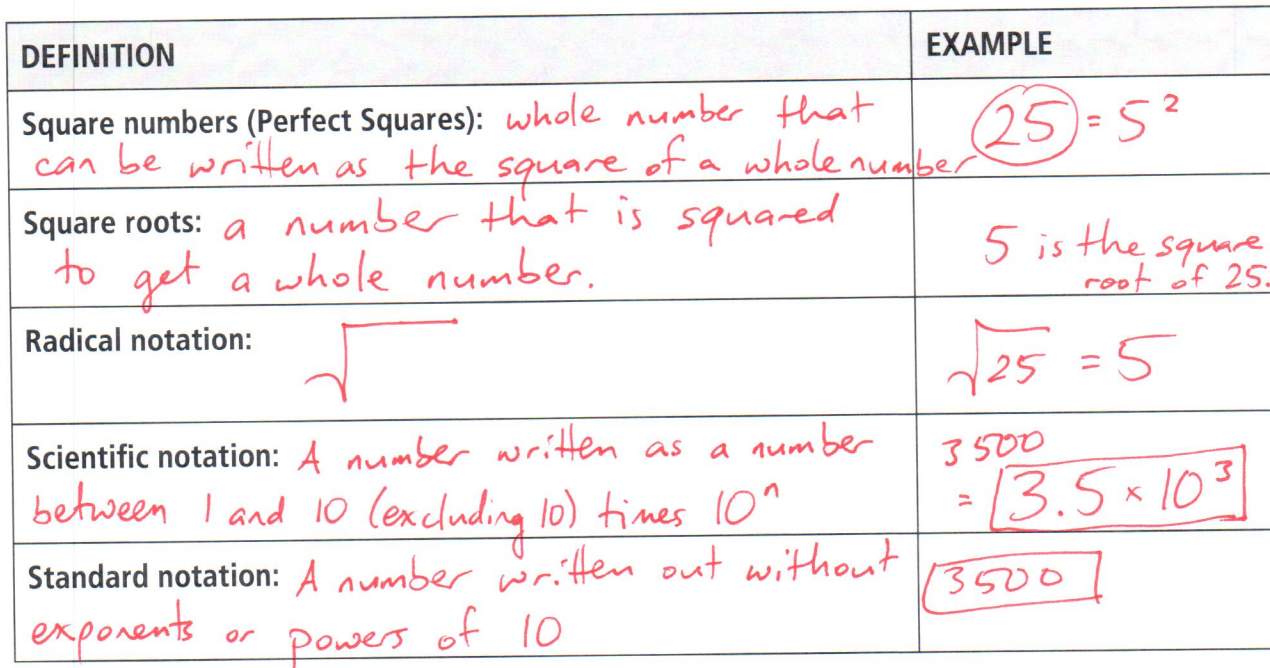 DEFINITION EXAMPLE
Square numbers (Perfect Squares): whole number that
can be written as the square of a whole number
25 = 5²
Square roots: a number that is squared
to get a whole number.
5 is the square
root of 25.
Radical notation: √
√25 = 5
Scientific notation: A number written as a number
between 1 and 10 (excluding 10) times 10ⁿ
3500
= 3.5 × 10³
Standard notation: A number written out without
exponents or powers of 10
3500